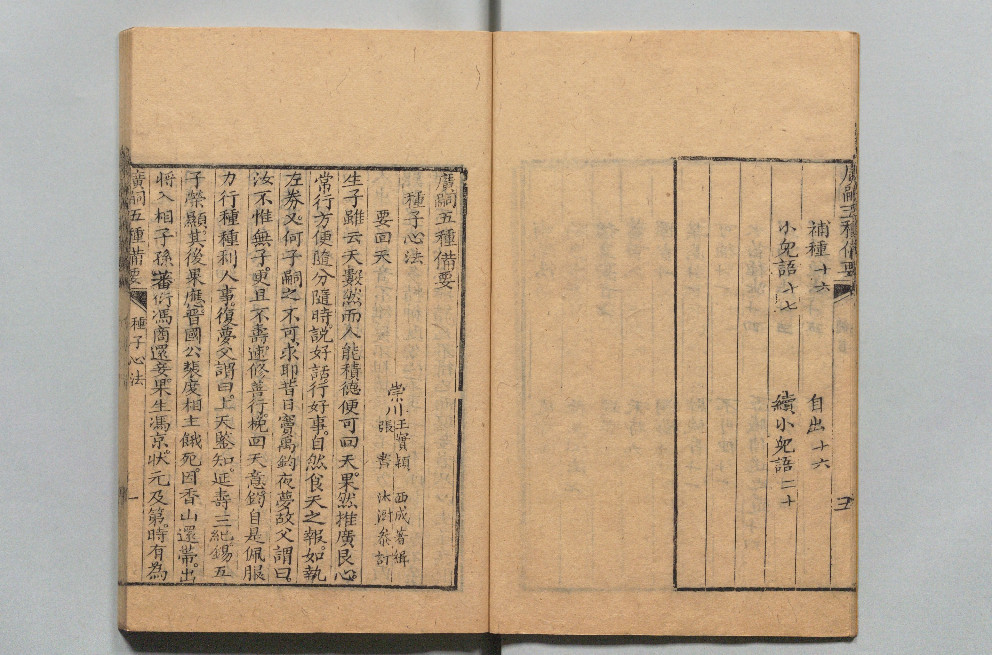 廣嗣五種備要
補種十六
自出十六
小兒語十七
續小兒語二十
五
廣嗣五種備要
種子心法
崇川
王實穎 西成著緝
張 書 沐澍叅訂
要回天
生子雖云天數然而人能積德便可回天果然推廣良心
常行方便隨分隨時說好話行好事自然食天之報如執
左券又何子嗣之不可求耶昔日竇禹鈞夜夢故父謂曰
汝不惟無子更且不壽速修善行挽回天意鈞自是佩服
力行種種利人事復夢父謂曰上天鑒知延壽三紀錫五
子榮顯其後果應晉國公裴度相主餓死因香山還帶出
將入相子孫蕃衍馮商還妾果生馮京狀元及第時有為
廣嗣五種備要
種子心法
一